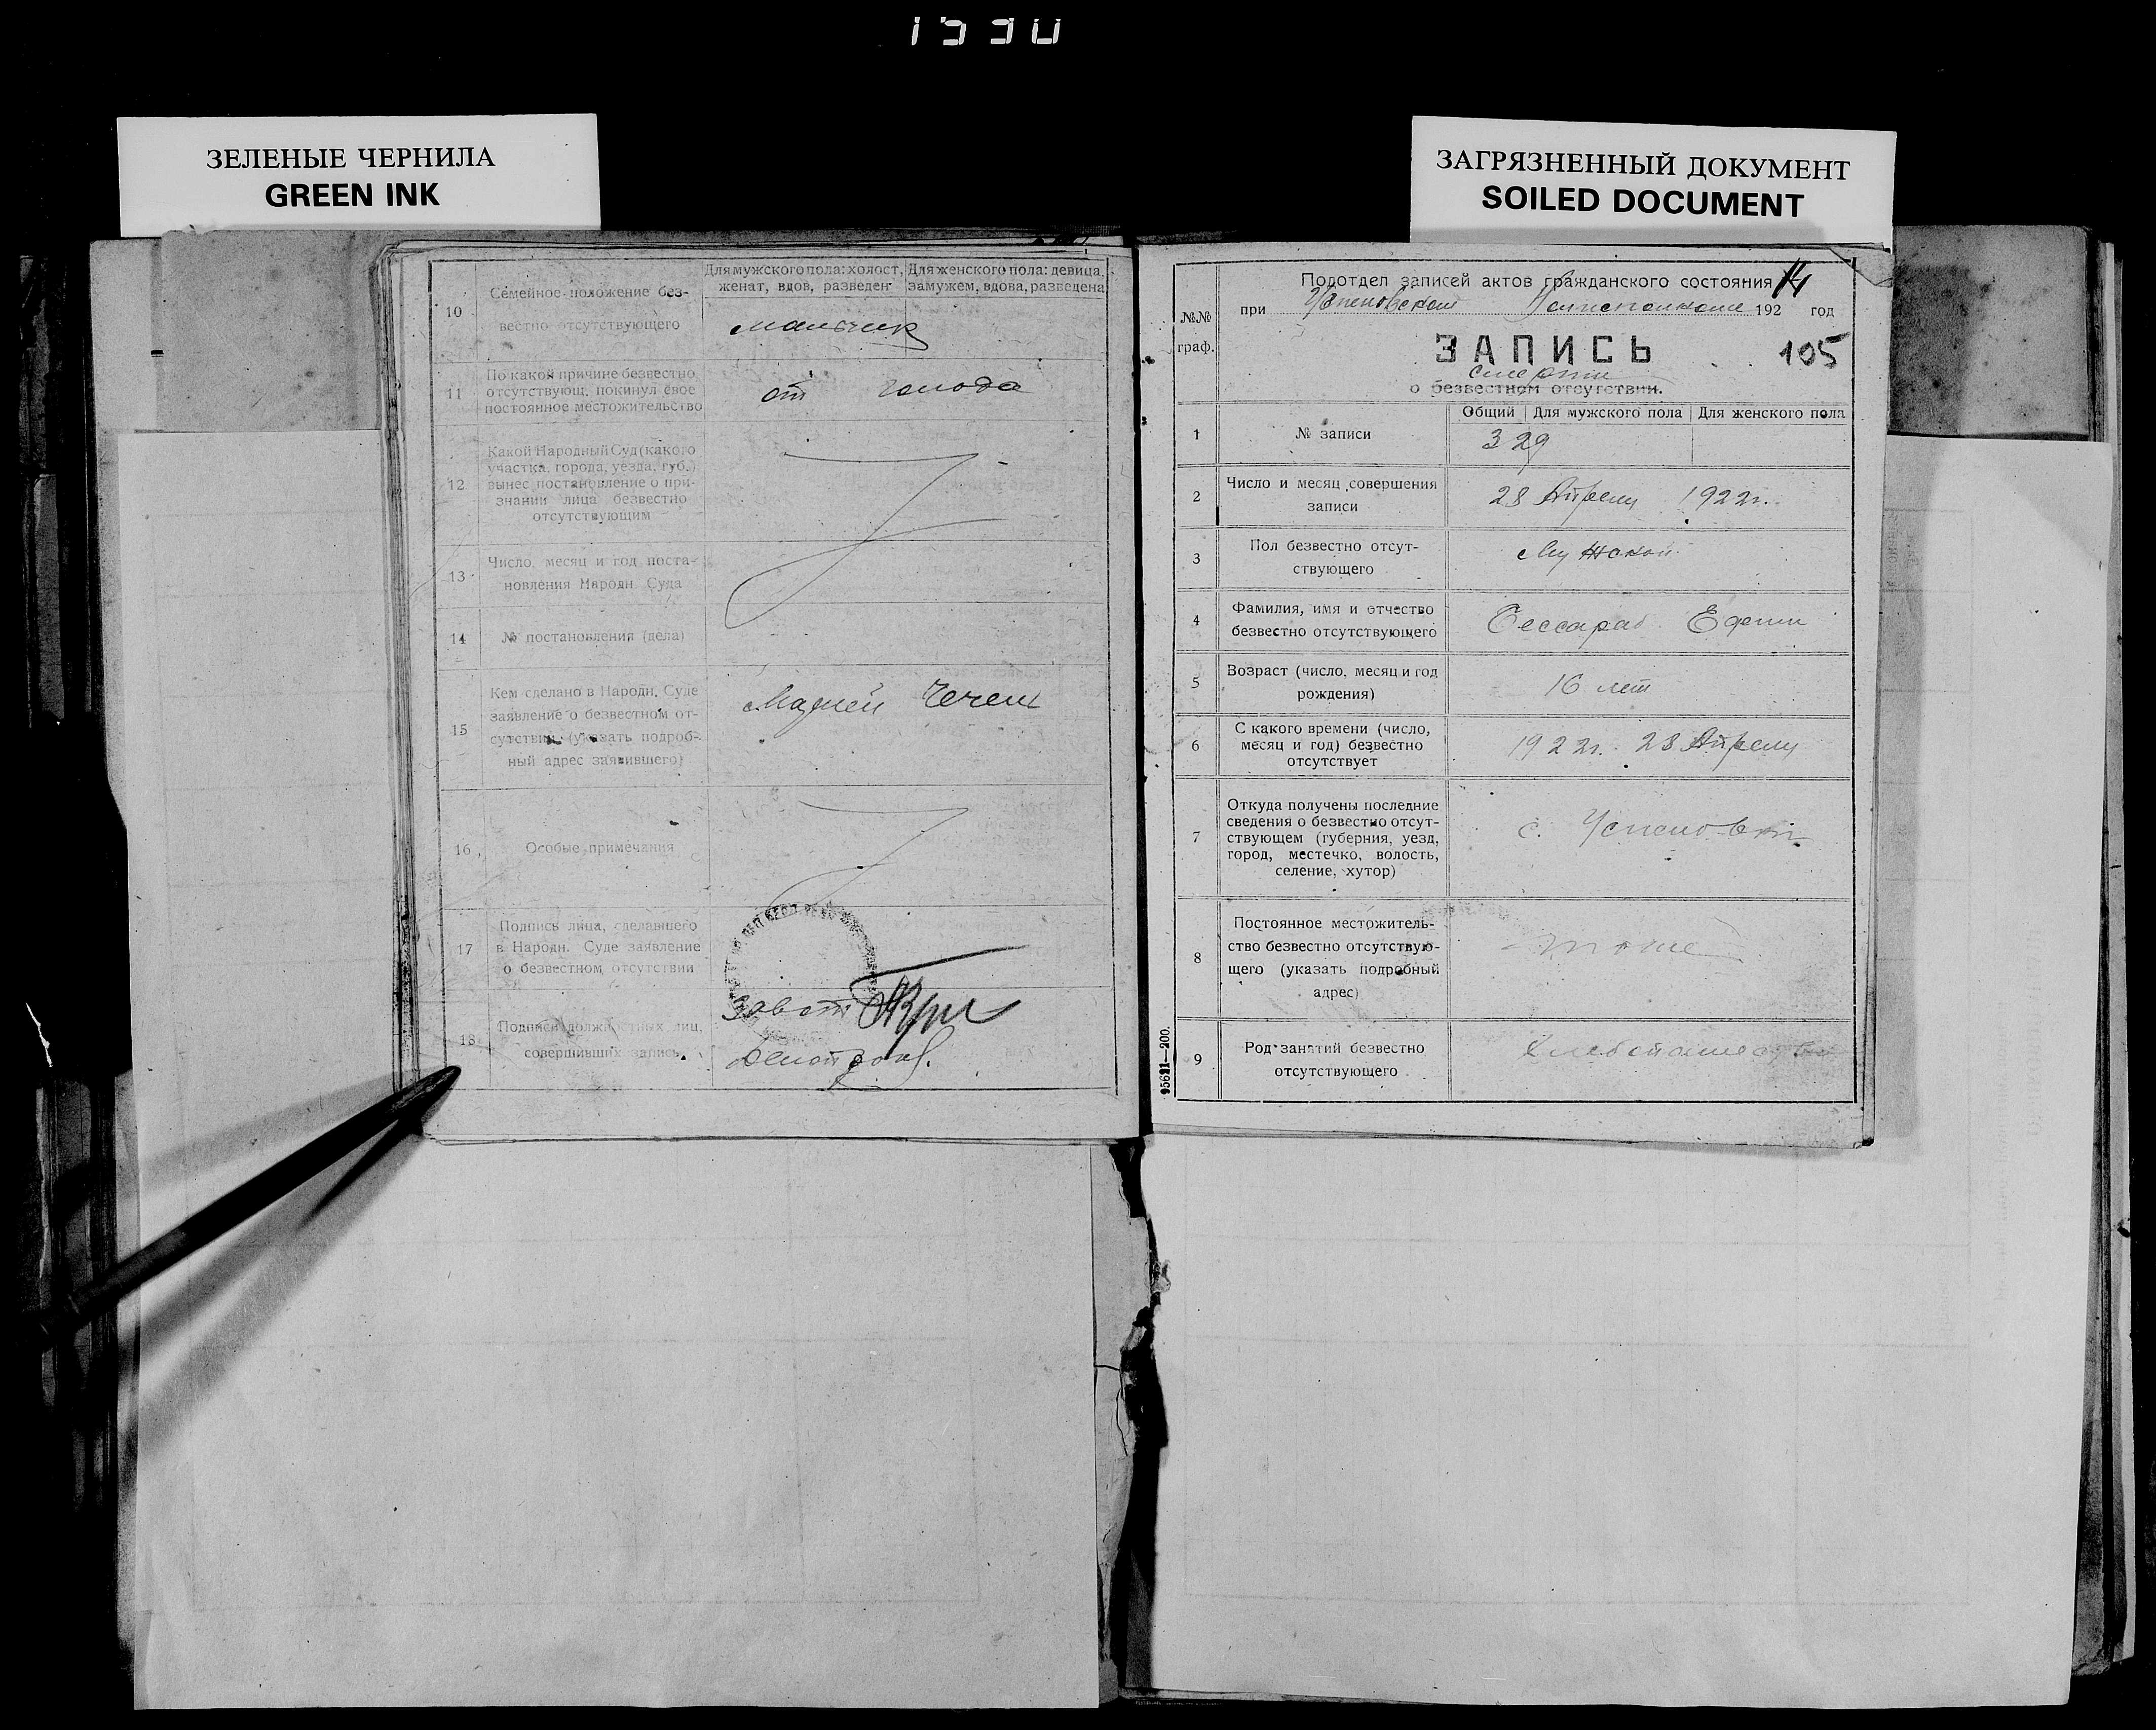 1990
ЗЕЛЕНЫЕ ЧЕРНИЛА
GREEN INK
ЗАГРЯЗНЕННЫЙ ДОКУМЕНТ
SOILED DOCUMENT
10
Семейное положение без-
вестно отсутствующего
Для мужского пола: холост,
женат, вдов, разведен
Для женского пола: девица,
замужем, вдова, разведена
мальчик
11
По какой причине безвестно
отсутствующ. покинул свое
постоянное местожительство
от голода
12
Какой Народный Суд (какого
участка, города, уезда, губ.)
вынес постановление о при-
знании лица безвестно
отсутствующим
13
Число, месяц и год поста-
новления Народн. Суда
14
№ постановления (дела)
15
Кем сделано в Народн. Суде
заявление о безвестном от-
сутствии (указать подроб-
ный адрес заявившего)
16
Особые примечания
17
Подпись лица, сделавшего
в Народн. Суде заявление
о безвестном отсутствии
18
Подписи должностных лиц,
совершивших запись.
Завот
Делопр
№№
граф.
Подотдел записей актов гражданского состояния 14
при Успеновском Волисполкоме 192 год
ЗАПИСЬ
105
смерти
о безвестном отсутствии.
Общий
Для мужского пола
Для женского пола
1
№ записи
329
2
Число и месяц совершения
записи
28 Апреля 1922г.
3
Пол безвестно отсут-
ствующего
Мужской
4
Фамилия, имя и отчество
безвестно отсутствующего
Бессараб Ефим
5
Возраст (число, месяц и год
рождения)
16 лет
6
С какого времени (число,
месяц и год) безвестно
отсутствует
1922г. 28 Апреля
7
Откуда получены последние
сведения о безвестно отсут-
ствующем (губерния, уезд,
город, местечко, волость,
селение, хутор)
с. Успеновки
8
Постоянное местожитель-
ство безвестно отсутствую-
щего (указать подробный
адрес)
тоже
9
Род занятий безвестно
отсутствующего
Хлебопашество
95621—200.